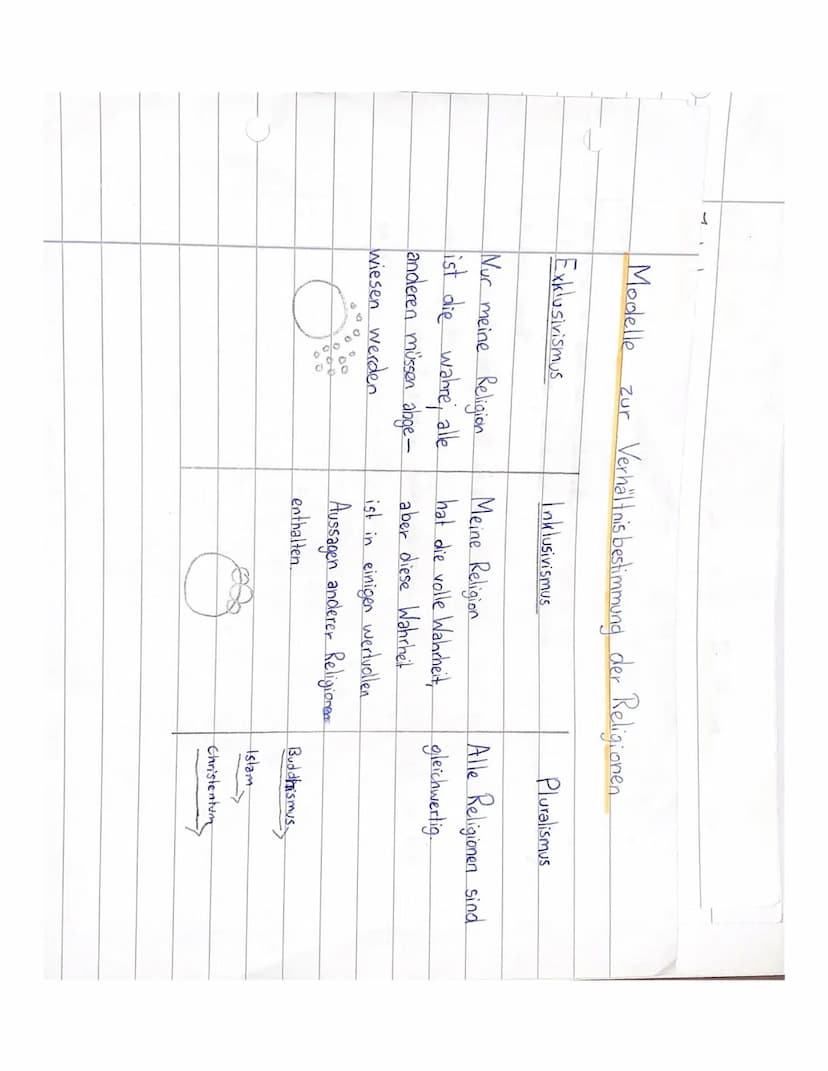 Modelle zur Verhältnisbestimmung der Religionen
Exklusivismus
Nur meine Religion
ist die wahre, alle
anderen müssen abge-
wiesen werden
Inklusivismus
Meine Religion
hat die volle Wahrheit,
aber diese Wahrheit
ist in einigen wertvollen
Aussagen anderer Religionen
enthalten.
Pluralismus
Alle Religionen sind
gleichwertig.
Buddhismus
Islam
Christentum